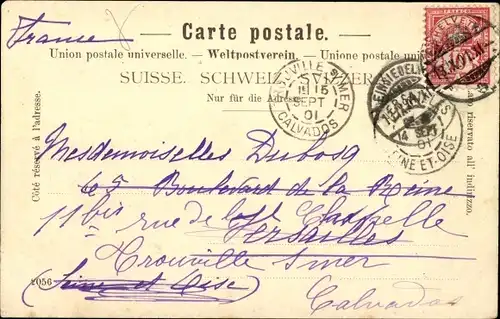 France
Carte postale.
Union postale universelle. — Weltpostverein. — Unione postale
SUISSE. SCHWEIZ. SVIZZERA.
Nur für die Adresse
Côté réservé à l'adresse.
Lato riservato all' indirizzo.
TROUVILLE S/MER
15
SEPT
01
CALVADOS
EINSIEDELN
VERSAILLES
14 SEPT
01
SEINE-ET-OISE
Mesdemoiselles Dubosq
65 Boulevard de la Reine
11 bis rue de la Chapelle
Versailles
Trouville s/mer
1056
(Seine et Oise)
Calvados